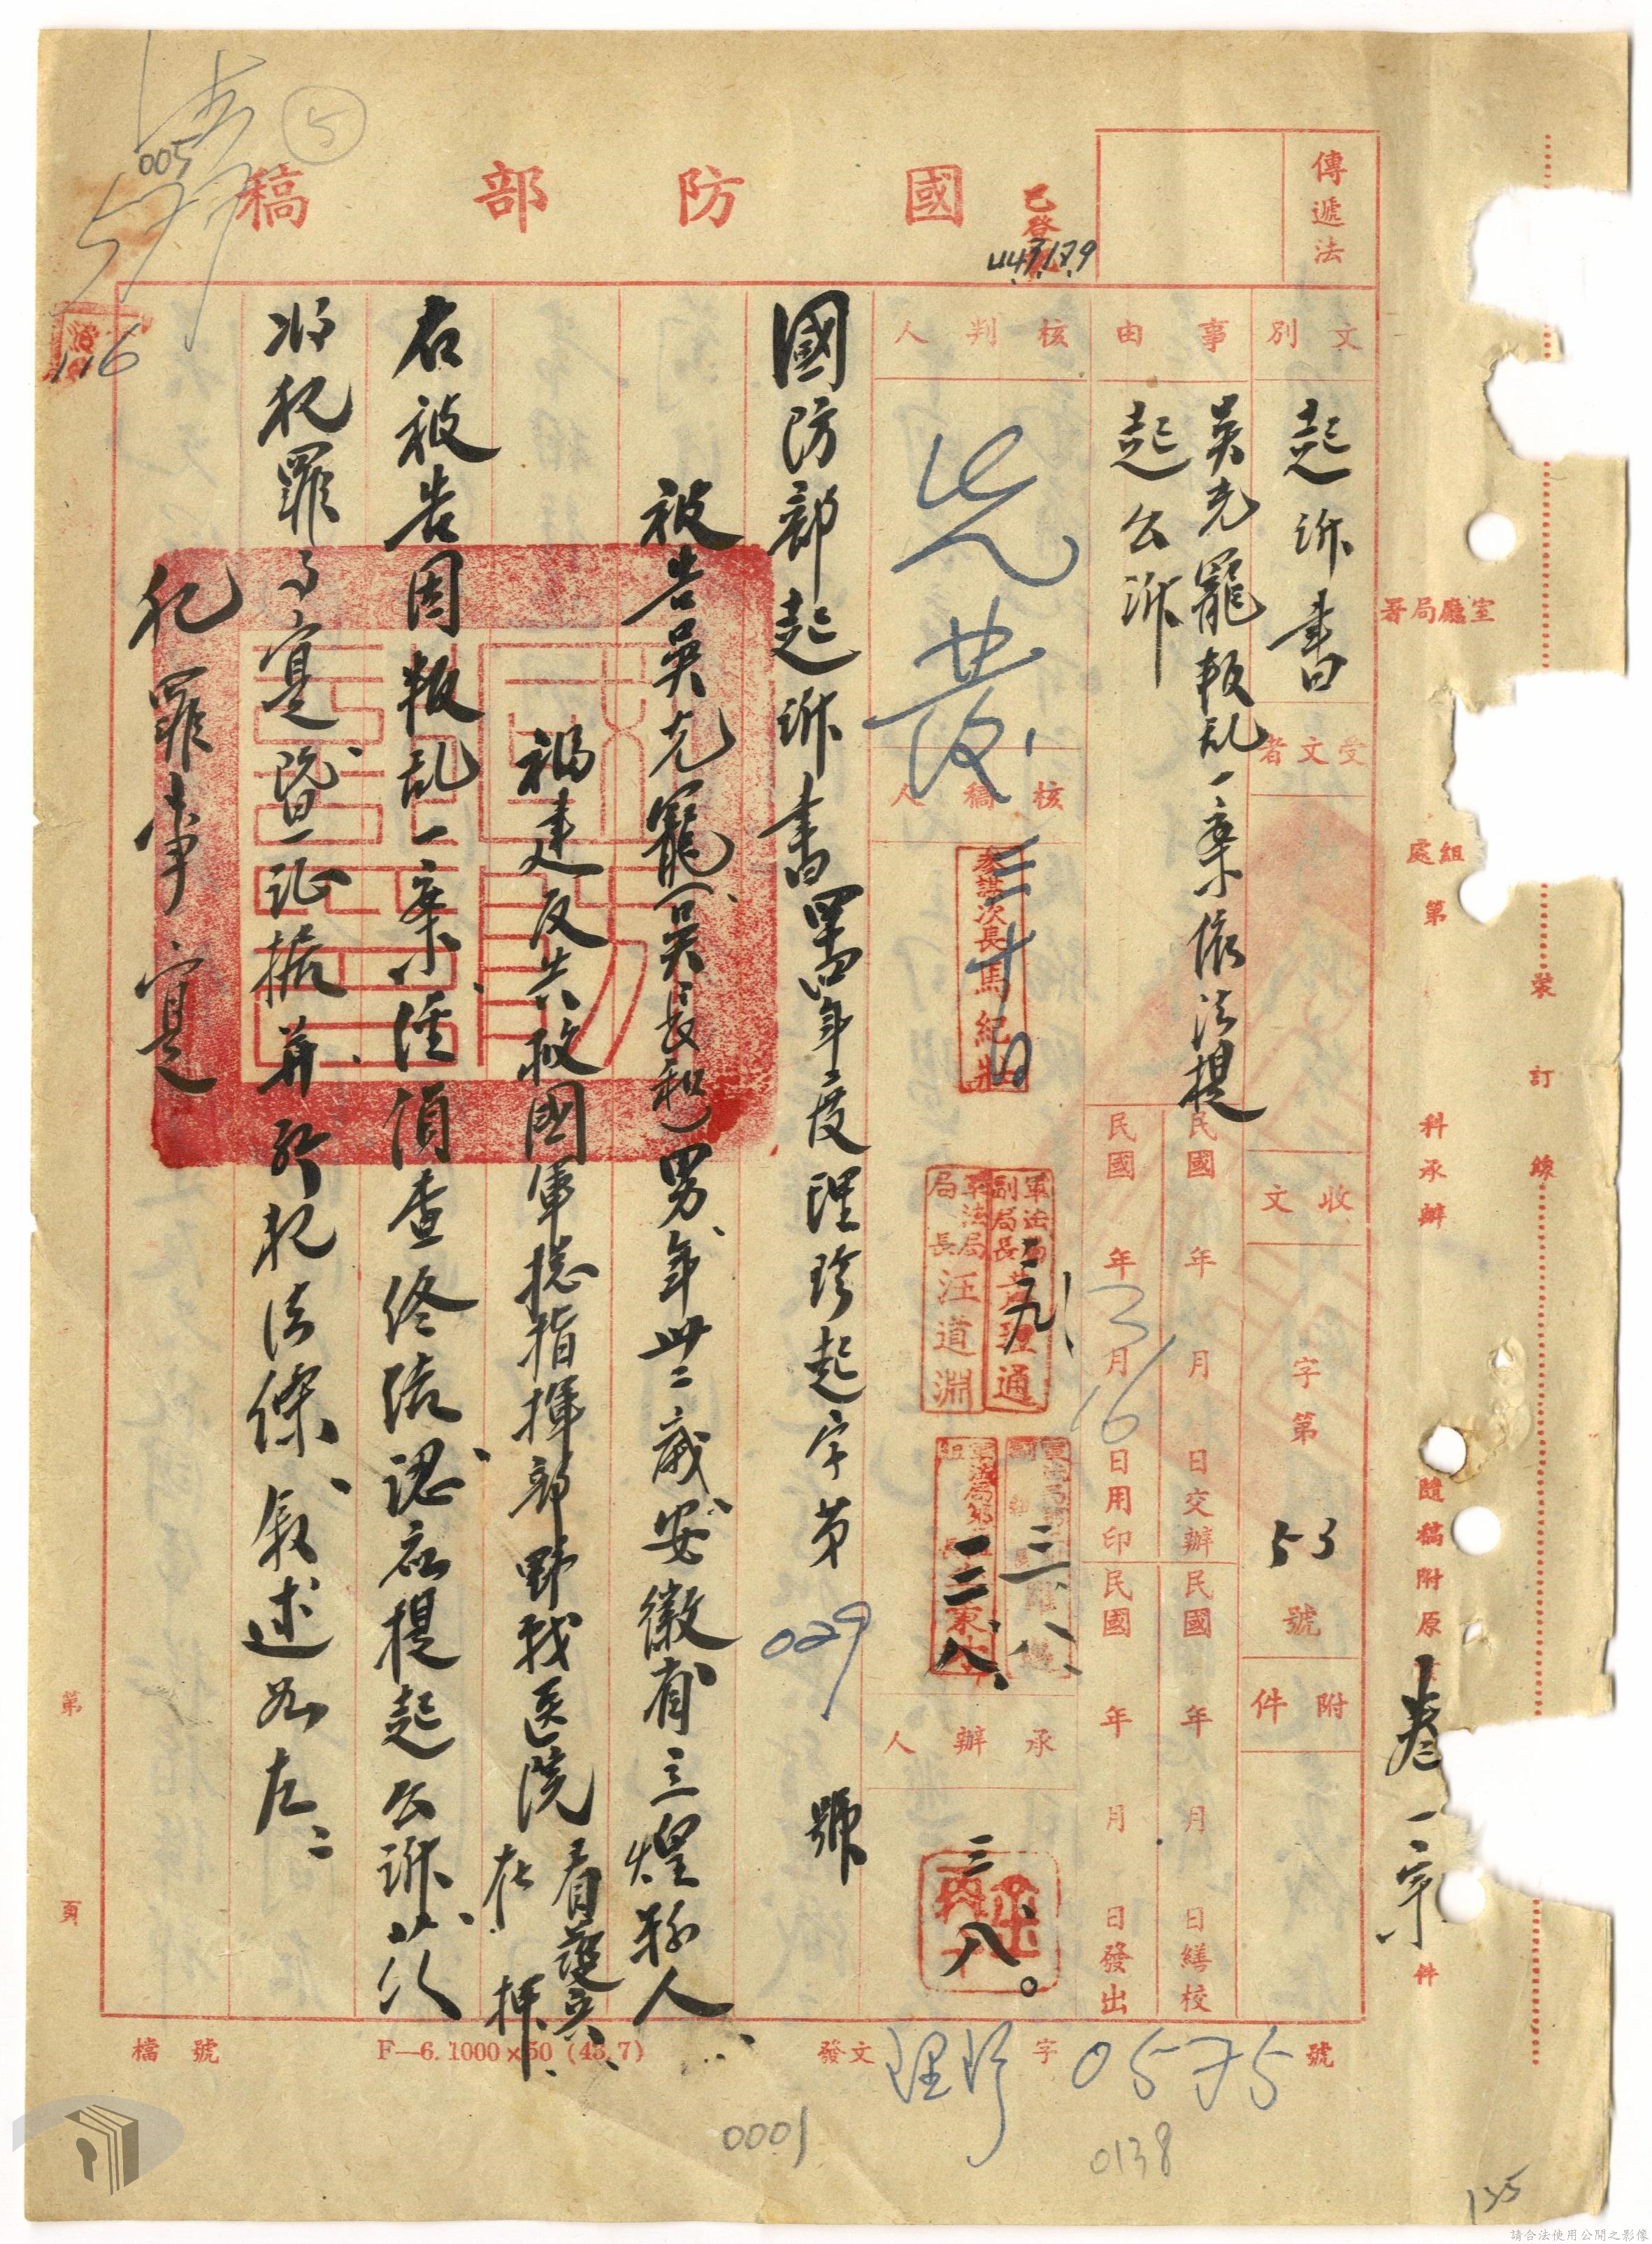 國防部稿
傳遞法
文別
起訴書
事由
吳克寵叛乱一案依法提
起公訴
核判人
先發
受文者
核稿人
三月十日
收文
字第
53
號
附件
民國 年 月 日交辦
民國 年 月 日用印
3 16
民國 年 月 日繕校
民國 年 月 日發出
軍法局副局長
軍法局局長汪道淵
三九
三、八、
三八、
承辦人
三八。
國防部起訴書 四四年度理珍起字第 029 號
被告吳克寵(吳長和)男、年卅二歲、安徽
福建反共救國軍總指揮部野戰医院看護兵、
在押、
右被告因叛乱一案、經偵查終結、認應提起公訴、茲
將犯罪事實、暨証據、并所犯法條、敘述如左:
犯罪事實
室廳局署
組處
第
科承辦
隨稿附原
卷一宗
件
裝
訂
線
第
頁
檔號
F—6. 1000×50 (43.7)
發文
理珍
字
0575
號
0001
0138
005
5
116
135
請合法使用公開之影像